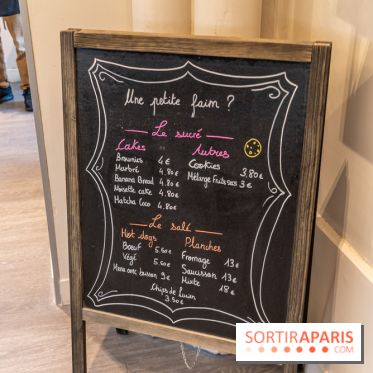 Une petite faim ?
Le sucré
Cakes
Brownies 4€
Marbré 4.80€
Banana Bread 4.80€
Noisette cake 4.80€
Matcha Coco 4.80€
Autres
Cookies 3,80€
Mélange 3€
Le salé
Hot dogs
Bœuf 5.50€
Végé 5.50€
Menu avec boisson 9€
Planches
Fromage 13€
Saucisson 13€
Mixte 18€
Chips de 
3.50€
SORTIRAPARIS
.COM